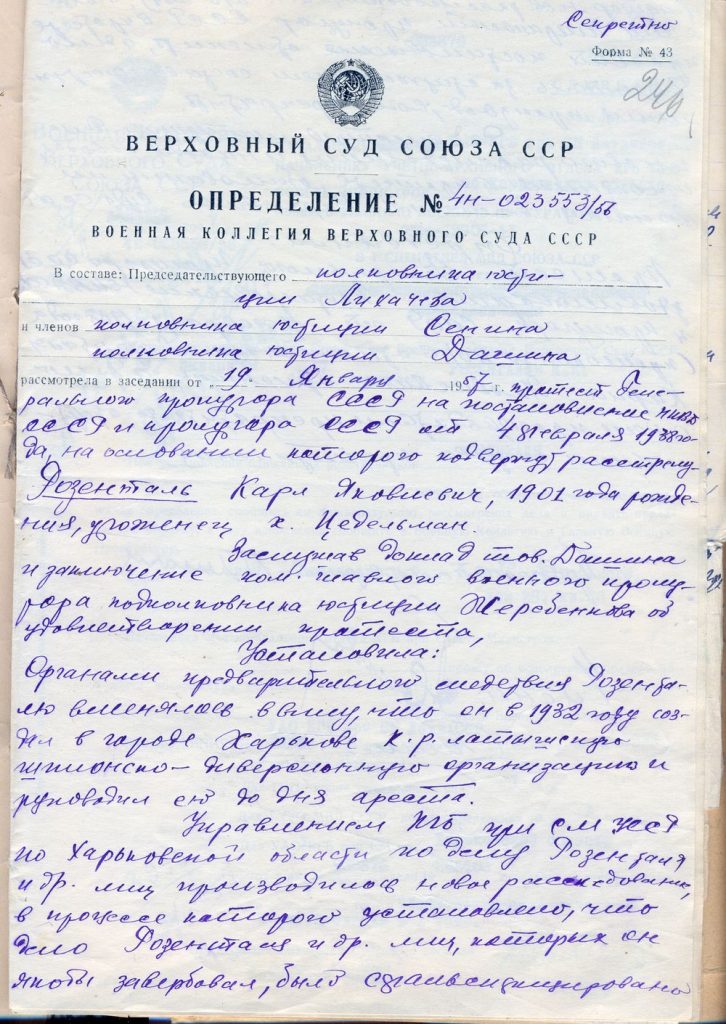 Секретно
Форма № 43
246
ВЕРХОВНЫЙ СУД СОЮЗА ССР
ОПРЕДЕЛЕНИЕ № 4н-023553/56
ВОЕННАЯ КОЛЛЕГИЯ ВЕРХОВНОГО СУДА СССР
В составе: Председательствующего полковника юсти-
ции Лихачева
и членов полковника юстиции Сенина
полковника юстиции Дашина
рассмотрела в заседании от „19" Января 1957 г. протест Гене-
рального прокурора СССР на постановление НКВД
СССР и прокурора СССР от 4 февраля 1938 го-
да, на основании которого подвергнут расстрелу
Розенталь Карл Яковлевич, 1901 года рожде-
ния, уроженец х. Цедельман.
Заслушав доклад тов. Дашина
и заключение пом. главного военного проку-
рора подполковника юстиции Жеребенкова об
удовлетворении протеста,
Установила:
Органами предварительного следствия Розента-
лю вменялось в вину, что он в 1932 году соз-
дал в городе Харькове к.р. латышскую
шпионско-диверсионную организацию и
руководил ею до дня ареста.
Управлением КГБ при СМ УССР
по Харьковской области по делу Розенталя
и др. лиц производилось новое расследование,
в процессе которого установлено, что
дело Розенталя и др. лиц, которых он
якобы завербовал, было сфальсифицировано